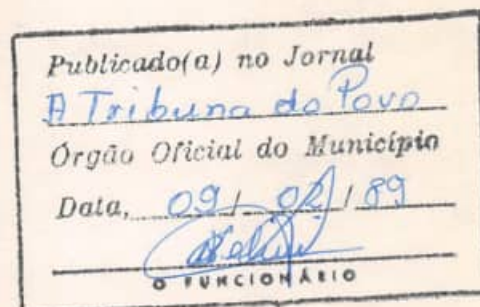 Publicado(a) no Jornal
A Tribuna do Povo
Órgão Oficial do Município
Data, 09 / 02 / 89
O FUNCIONÁRIO